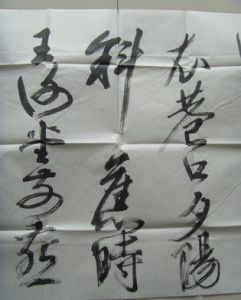 衣巷口夕陽
斜舊時
王謝堂前燕